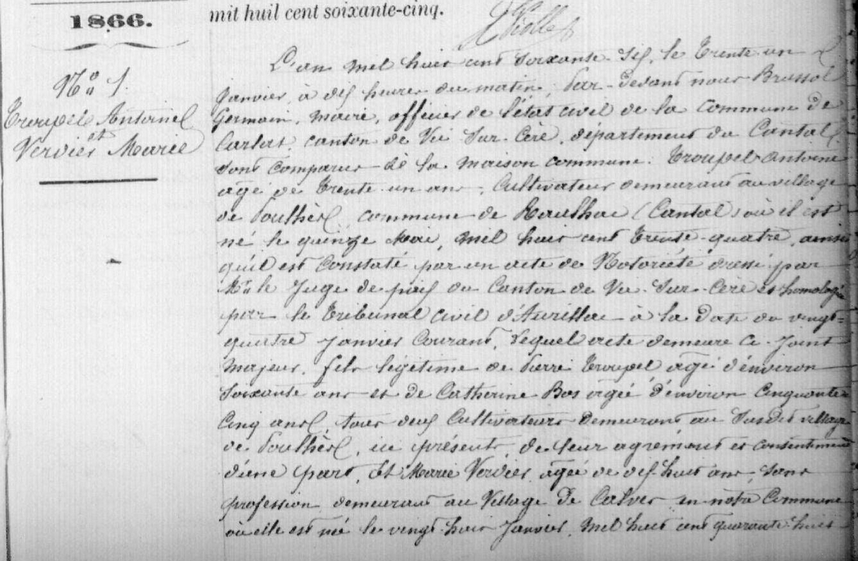 1866.
mil huit cent soixante-cinq.
N° 1.
Troupel Antoine
et
Vervier Marie
L'an mil huit cent soixante six, le trente un
janvier, à dix heures du matin, par-devant nous Brussol
Germain, maire, officier de l'état civil de la commune de
Carlat, canton de Vic-sur-Cère, département du Cantal
sont comparus à la maison commune: Troupel Antoine
âgé de trente un ans, cultivateur demeurant au village
de commune de Raulhac (Cantal) où il est
né le quinze Mai, mil huit cent trente-quatre, ainsi
qu'il est constaté par un acte de Notoriété dressé par
Mr le Juge de paix du Canton de Vic-sur-Cère et homologué
par le Tribunal civil d'Aurillac à la date du vingt-
quatre janvier courant, lequel acte demeure ci-joint
Majeur, fils légitime de Pierre Troupel âgé d'environ
soixante ans et de Catherine Bos âgée d'environ cinquante
cinq ans, tous deux cultivateurs demeurant au susdit village
de ici présents, de leur agrément et consentement
d'une part, Et Marie Vervier, âgée de dix huit ans, sans
profession demeurant au village de Calves en notre commune
où elle est né le vingt-huit janvier, mil huit cent quarante-huit